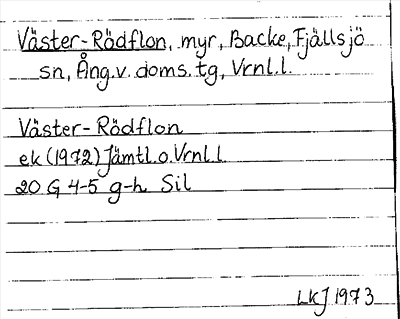 Väster-Rödflon, myr, Backe, Fjällsjö
sn, Ång.v. doms. tg, Vrnl.l.
Väster-Rödflon
ek (1972) Jämtl.o.Vrnl.l.
20 G 4-5 g-h Sil
LKJ 1973